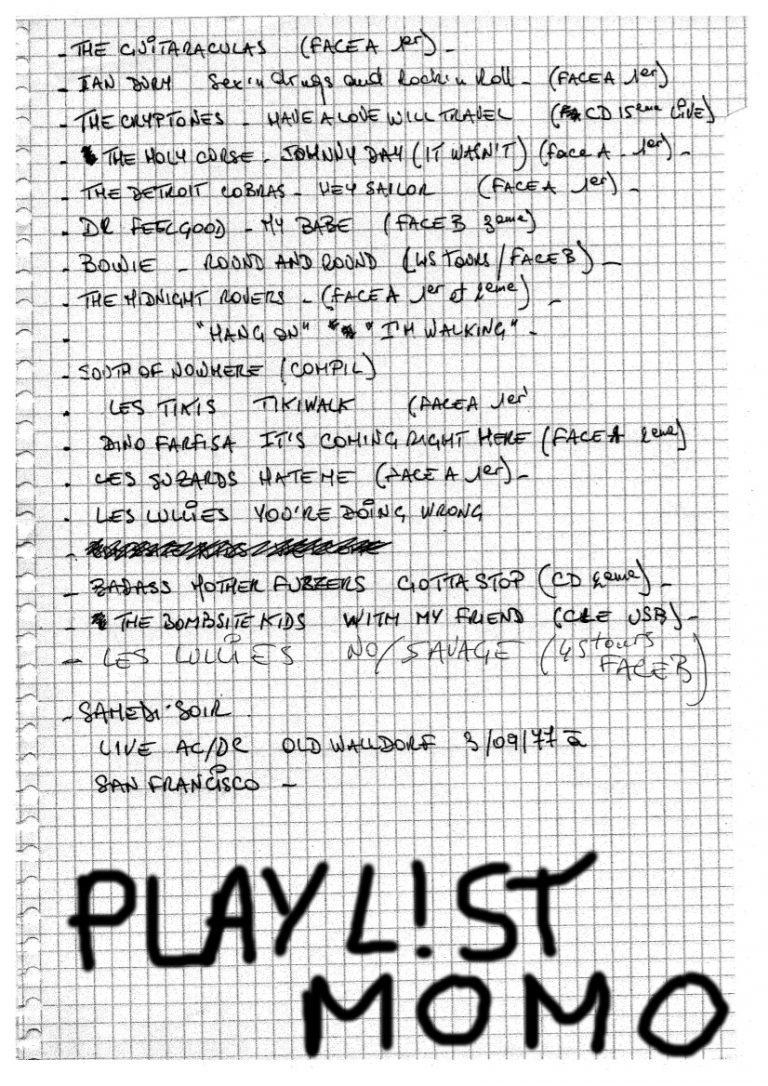 - THE GUITARACULAS (FACE A 1er) -
- IAN DURY Sex'n drugs and Rock'n Roll - (FACE A 1er)
- THE CRYPTONES - HAVE A LOVE WILL TRAVEL (CD 15eme LIVE)
- THE HOLY CURSE - JOHNNY DAY (IT WASN'T) (face A - 1er) -
- THE DETROIT COBRAS - HEY SAILOR (FACE A 1er) -
- DR FEELGOOD - MY BABE (FACE B 3eme)
- BOWIE - ROUND AND ROUND (45 TOURS / FACE B) -
- THE MIDNIGHT ROVERS - (FACE A 1er et 2eme) -
"HANG ON" "I'M WALKING" -
- SOUTH OF NOWHERE (COMPIL)
. LES TIKIS TIKIWALK (FACE A 1er
. DINO FARFISA IT'S COMING RIGHT HERE (FACE A 2eme)
. LES SUZARDS HATE ME (FACE A 1er) -
. LES LULLIES YOU'RE DOING WRONG
- BADASS MOTHER FUZZERS GOTTA STOP (CD 2eme) -
- THE BOMBSITE KIDS WITH MY FRIEND (CLE USB) -
- LES LULLIES NO/SAVAGE (45 tours
FACE B)
- SAMEDI SOIR
LIVE AC/DC OLD WALLDORF 3/09/77 à
SAN FRANCISCO -
PLAYL!ST
MOMO